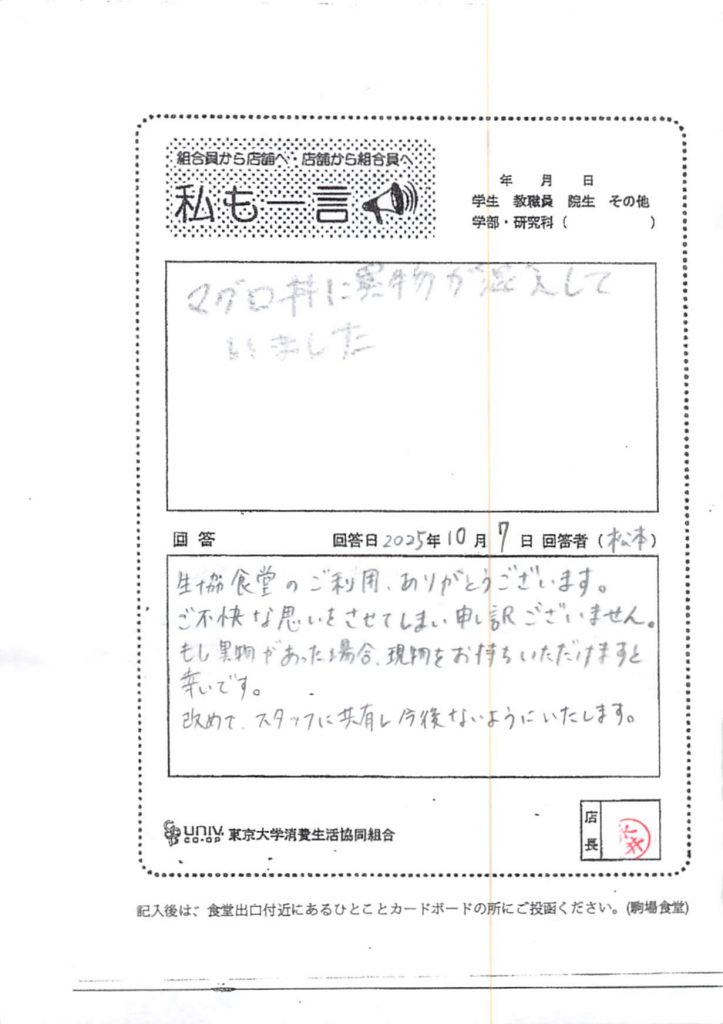 組合員から店舗へ・店舗から組合員へ
私も一言
年 月 日
学生 教職員 院生 その他
学部・研究科( )
マグロ丼に異物が混入して
いました
回答 回答日2025年10月7日 回答者(松本)
生協食堂のご利用、ありがとうございます。
ご不快な思いをさせてしまい申し訳ございません。
もし異物があった場合、現物をお持ちいただけますと
幸いです。
改めて、スタッフに共有し今後ないようにいたします。
UNIV. CO-OP 東京大学消費生活協同組合
店長
記入後は、食堂出口付近にあるひとことカードボードの所にご投函ください。(駒場食堂)